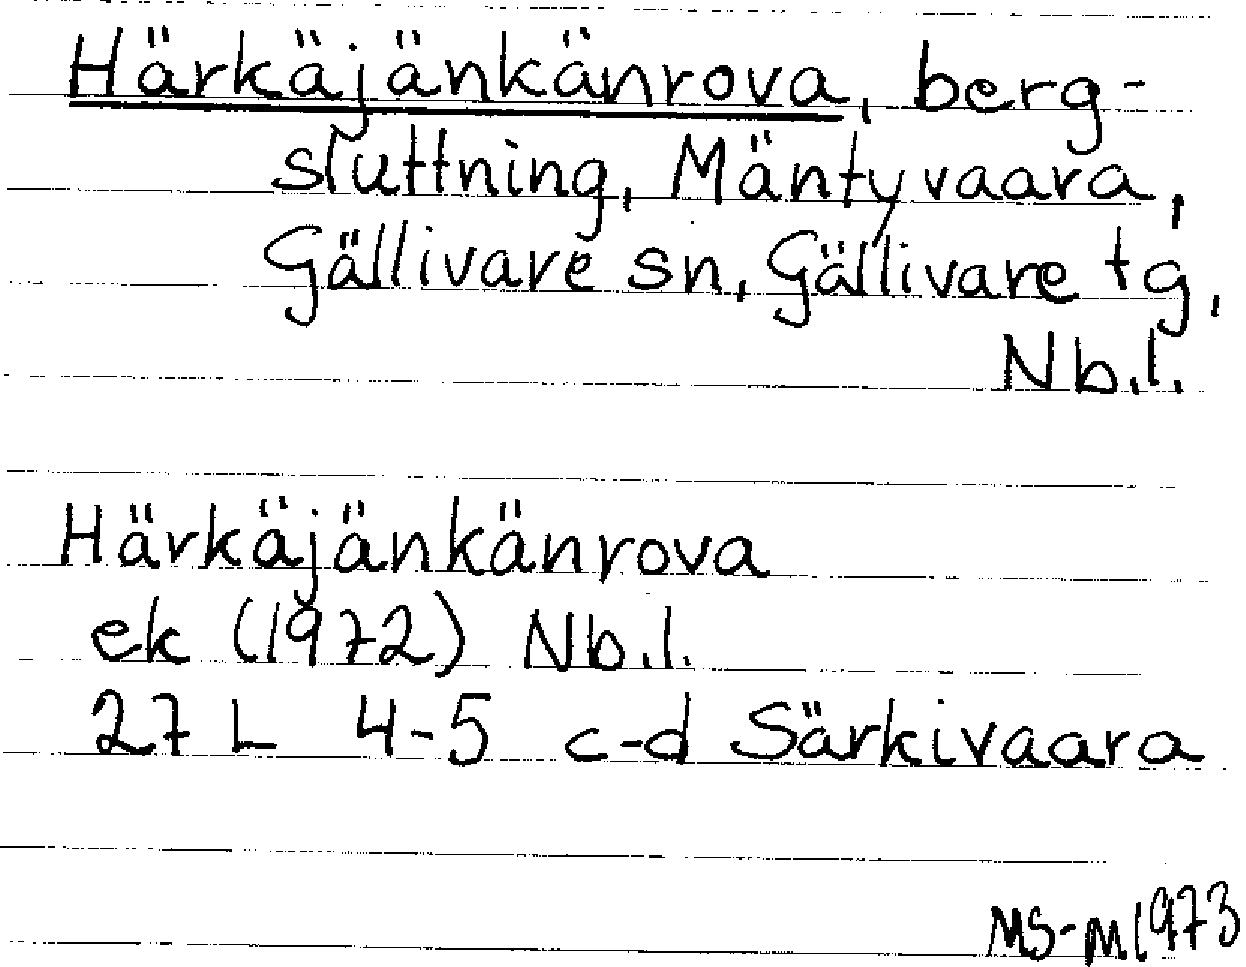 Härkäjänkänrova, berg-
sluttning, Mäntyvaara,
Gällivare sn, Gällivare tg,
Nb.l.
Härkäjänkänrova
ek (1972) Nb.l.
27 L 4-5 c-d Särkivaara
MS-M 1973